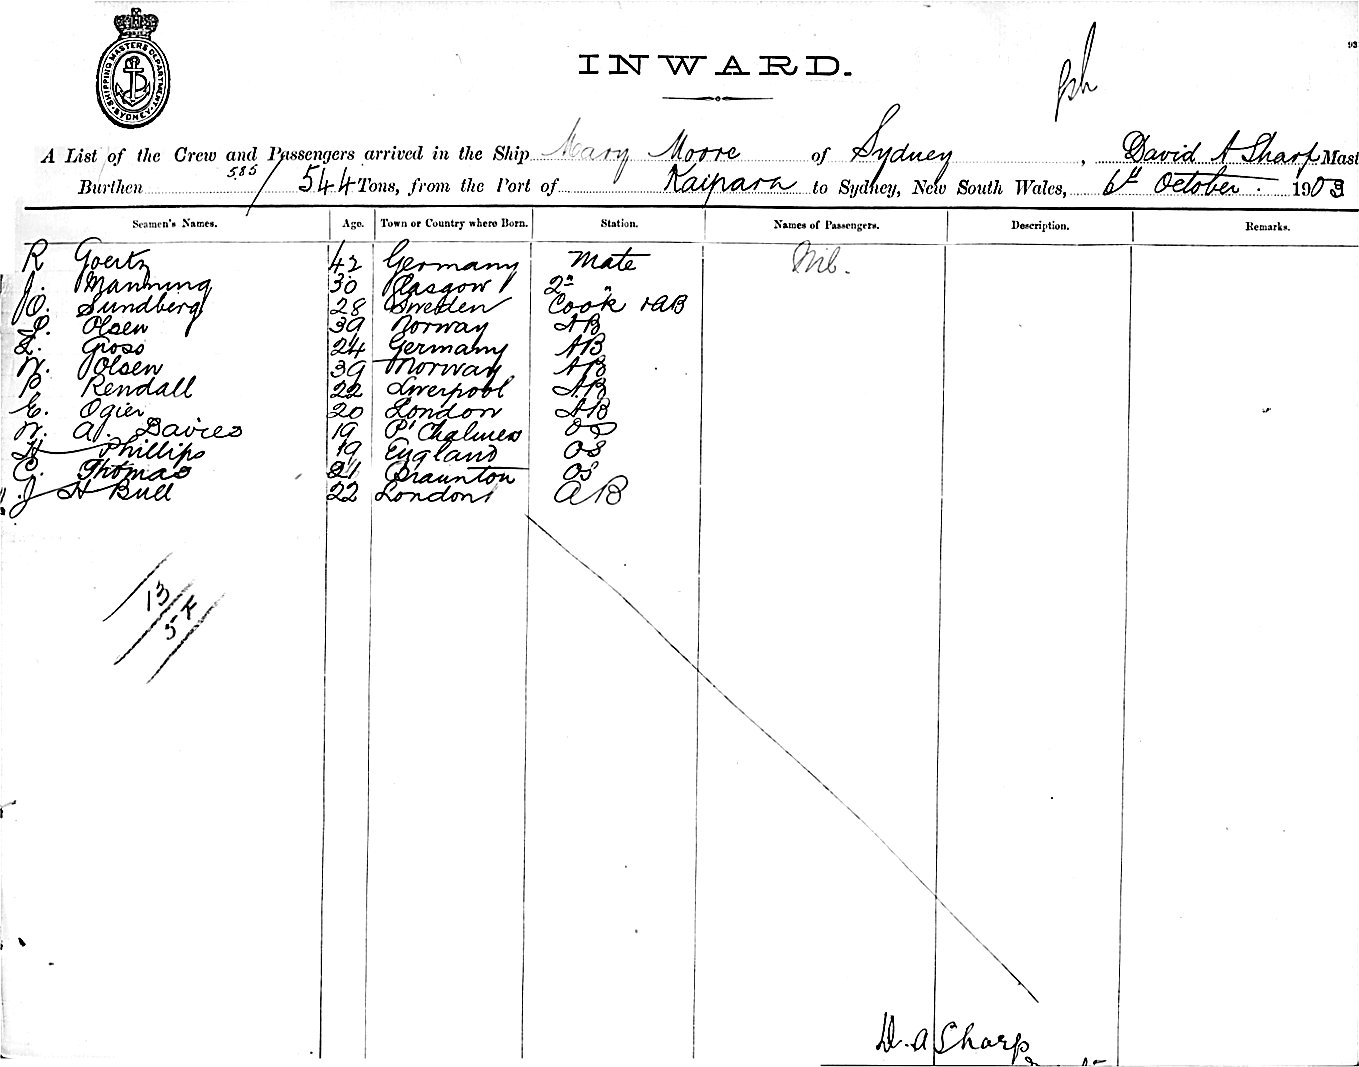 SHIPPING MASTERS DEPARTMENT SYDNEY
INWARD.
93
A List of the Crew and Passengers arrived in the Ship Mary Moore of Sydney, David A Sharp Mast
Burthen 585/544 Tons, from the Port of Kaipara to Sydney, New South Wales, 6th October. 1903
Seamen's Names. Age. Town or Country where Born. Station. Names of Passengers. Description. Remarks.
R Goertz 42 Germany Mate Nil.
J. Manning 30 Glasgow 2nd "
O. Sundberg 28 Sweden Cook & AB
Olsen 39 Norway AB
Gross 24 Germany AB
W. Olsen 39 Norway AB
P. Rendall 22 Liverpool AB
E. Ogier 20 London AB
W. A. Davies 19 Pt Chalmers OS
H Phillips 19 England OS
C. Thomas 21 Braunton OS
J H Bull 22 London AB
13
54
D. A Sharp